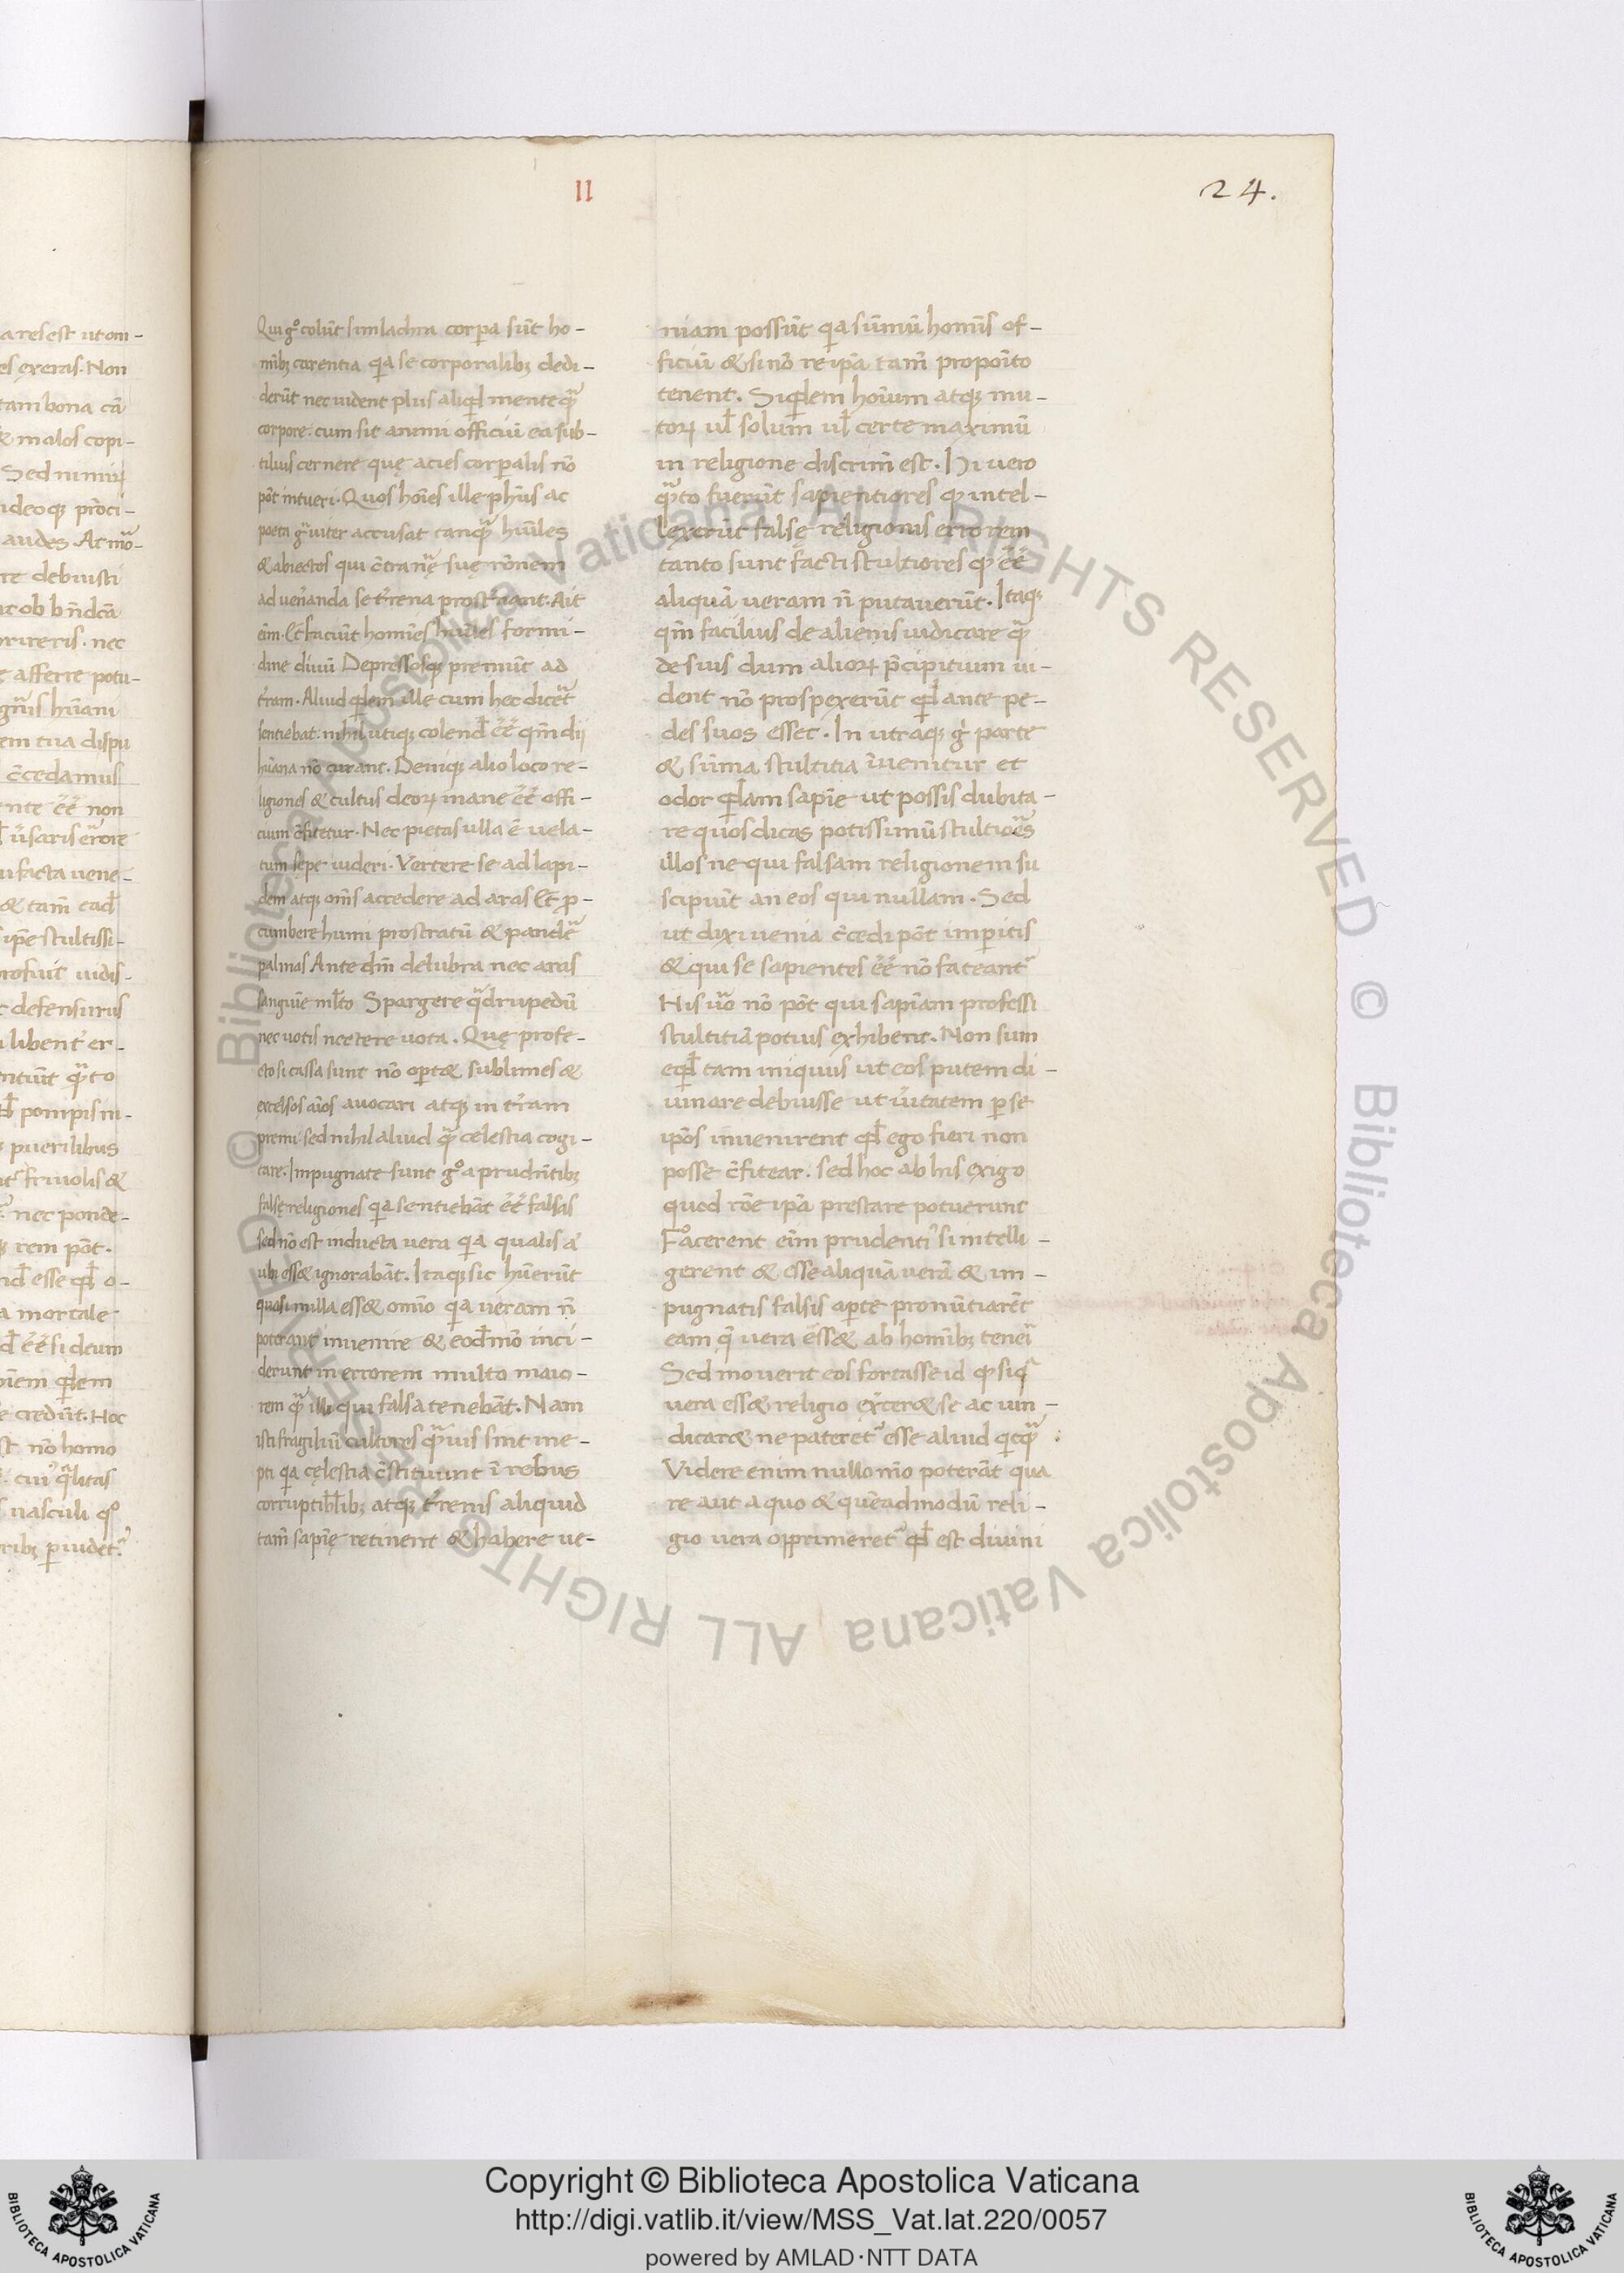 II
24.
Qui gº colūt simlachra corꝑa sūt ho-
mĩbꝫ carentia qa se corporalibꝫ dedi-
derūt nec uident plus aliqd mente qᷓ
corpore: cum sit animi officiū ea sub-
tilius cernere quę acies corꝑalis nō
pōt intueri. Quos hoīes ille phūs ac
poeta gᷓuiter accusat tanqᷓ hūiles
& abiectos qui c̄tra nᷓę suę rōnem
ad uen̄anda se t̄rena prost̄nant. Ait
eīm. Et faciūt homīes hūiles formi-
dine diuū Depressosqꝫ premūt ad
t̄ram. Aliud qdem ille cum hec dicēt
sentiebat: nihil utiqꝫ colend̄ ēē qm̄ dij
hūana nō curant. Deniqꝫ alio loco re-
ligiones & cultus deoꝝ inane ēē offi-
cium c̄fitetur. Nec pietas ulla ē uela-
tum sepe uideri. Vertere se ad lapi-
dem atqꝫ omīs accedere ad aras Et ꝓ-
cumbere humi prostratū & pandēr
palmas Ante dm̄ delubra nec aras
sanguīe ml̄to Spargere qᷓdrupedū
nec uotis nectere uota. Quę profe-
cto si cassa sunt nō oꝑt& sublimes &
excelsos aīos auocari atqꝫ in t̄ram
premi: sed nihil aliud qᷓ celestia cogi-
tare. Impugnate sunt gº a prudn̄tibꝫ
falsę religiones qa sentiebāt ēē falsas
sed nō est inducta uera qa qualis a'
ubi ess& ignorabāt. Itaqꝫ sic hūerūt
quasi nulla ess& omīo qa ueram n̄
poterant inuenire & eod̄ mō inci-
derunt in errorem multo maio-
rem qᷓ illi qui falsa tenebāt. Nam
isti fragiliū cultores qᷓuis sint ine-
pti qa cęlestia c̄stituunt ī rebus
corruptibl̄ibꝫ atqꝫ t̄renis aliquid
tam̄ sapīę retinent & habere ue-
niam possūt qa sūmū homīs of-
ficiū & si nō re ipā tam̄ propoīto
tenent. Siqdem hoīum atqꝫ mu-
toꝝ ul̄ solum ul̄ certe maximū
in religione discrim̄ est. Hi uero
qᷓto fuerūt sapientiores ꝙ intel-
lęxerūt falsę religionis errorem
tanto sunt facti stultiores ꝙ ēē
aliquā ueram n̄ putauerūt. Itaqꝫ
qm̄ facilius de alienis iudicare qᷓ
de suis dum alioꝝ p̄cipitium ui-
dent nō prospexerūt qd ante pe-
des suos esset. In utraqꝫ gͥ parte
& sūma stultitia īuenitur et
odor qdam sapīe ut possis dubita-
re quos dicas potissimū stultiores
illos ne qui falsam religionem su
scipiūt an eos qui nullam. Sed
ut dixi uenia c̄cedi pōt imꝑitis
& qui se sapientes ēē nō fateant᷑
His uō nō pōt qui sapīam professi
stultitiā potius exhibent. Non sum
eqd̄ tam iniquus ut eos putem di-
uinare debuisse ut ūitatem ꝑ se
ipōs inuenirent qd ego fieri non
posse c̄fitear. sed hoc ab his exigo
quod rōe ipā prestare potuerunt
Facerent eīm prudenti' si intelli-
gerent & esse aliquā verā & im-
pugnatis falsis aꝑte pronūtiarēt
eam q̄ uera ess& ab homībꝫ teneri
Sed mouerit eos fortasse id ꝙ siq᷑
uera ess& religio ex̄cer& se ac uin-
dicar& ne pateret᷑ esse aliud qcqᷓ:
Videre enim nullo mō poterāt qua
re aut a quo & quēadmodū reli-
gio uera opprimeret᷑ qd est diuini
© Biblioteca Apostolica Vaticana ALL RIGHTS RESERVED © Biblioteca Apostolica Vaticana ALL RIGHTS RESERVED
Copyright © Biblioteca Apostolica Vaticana
http://digi.vatlib.it/view/MSS_Vat.lat.220/0057
powered by AMLAD·NTT DATA
BIBLIOTECA APOSTOLICA VATICANA
BIBLIOTECA APOSTOLICA VATICANA